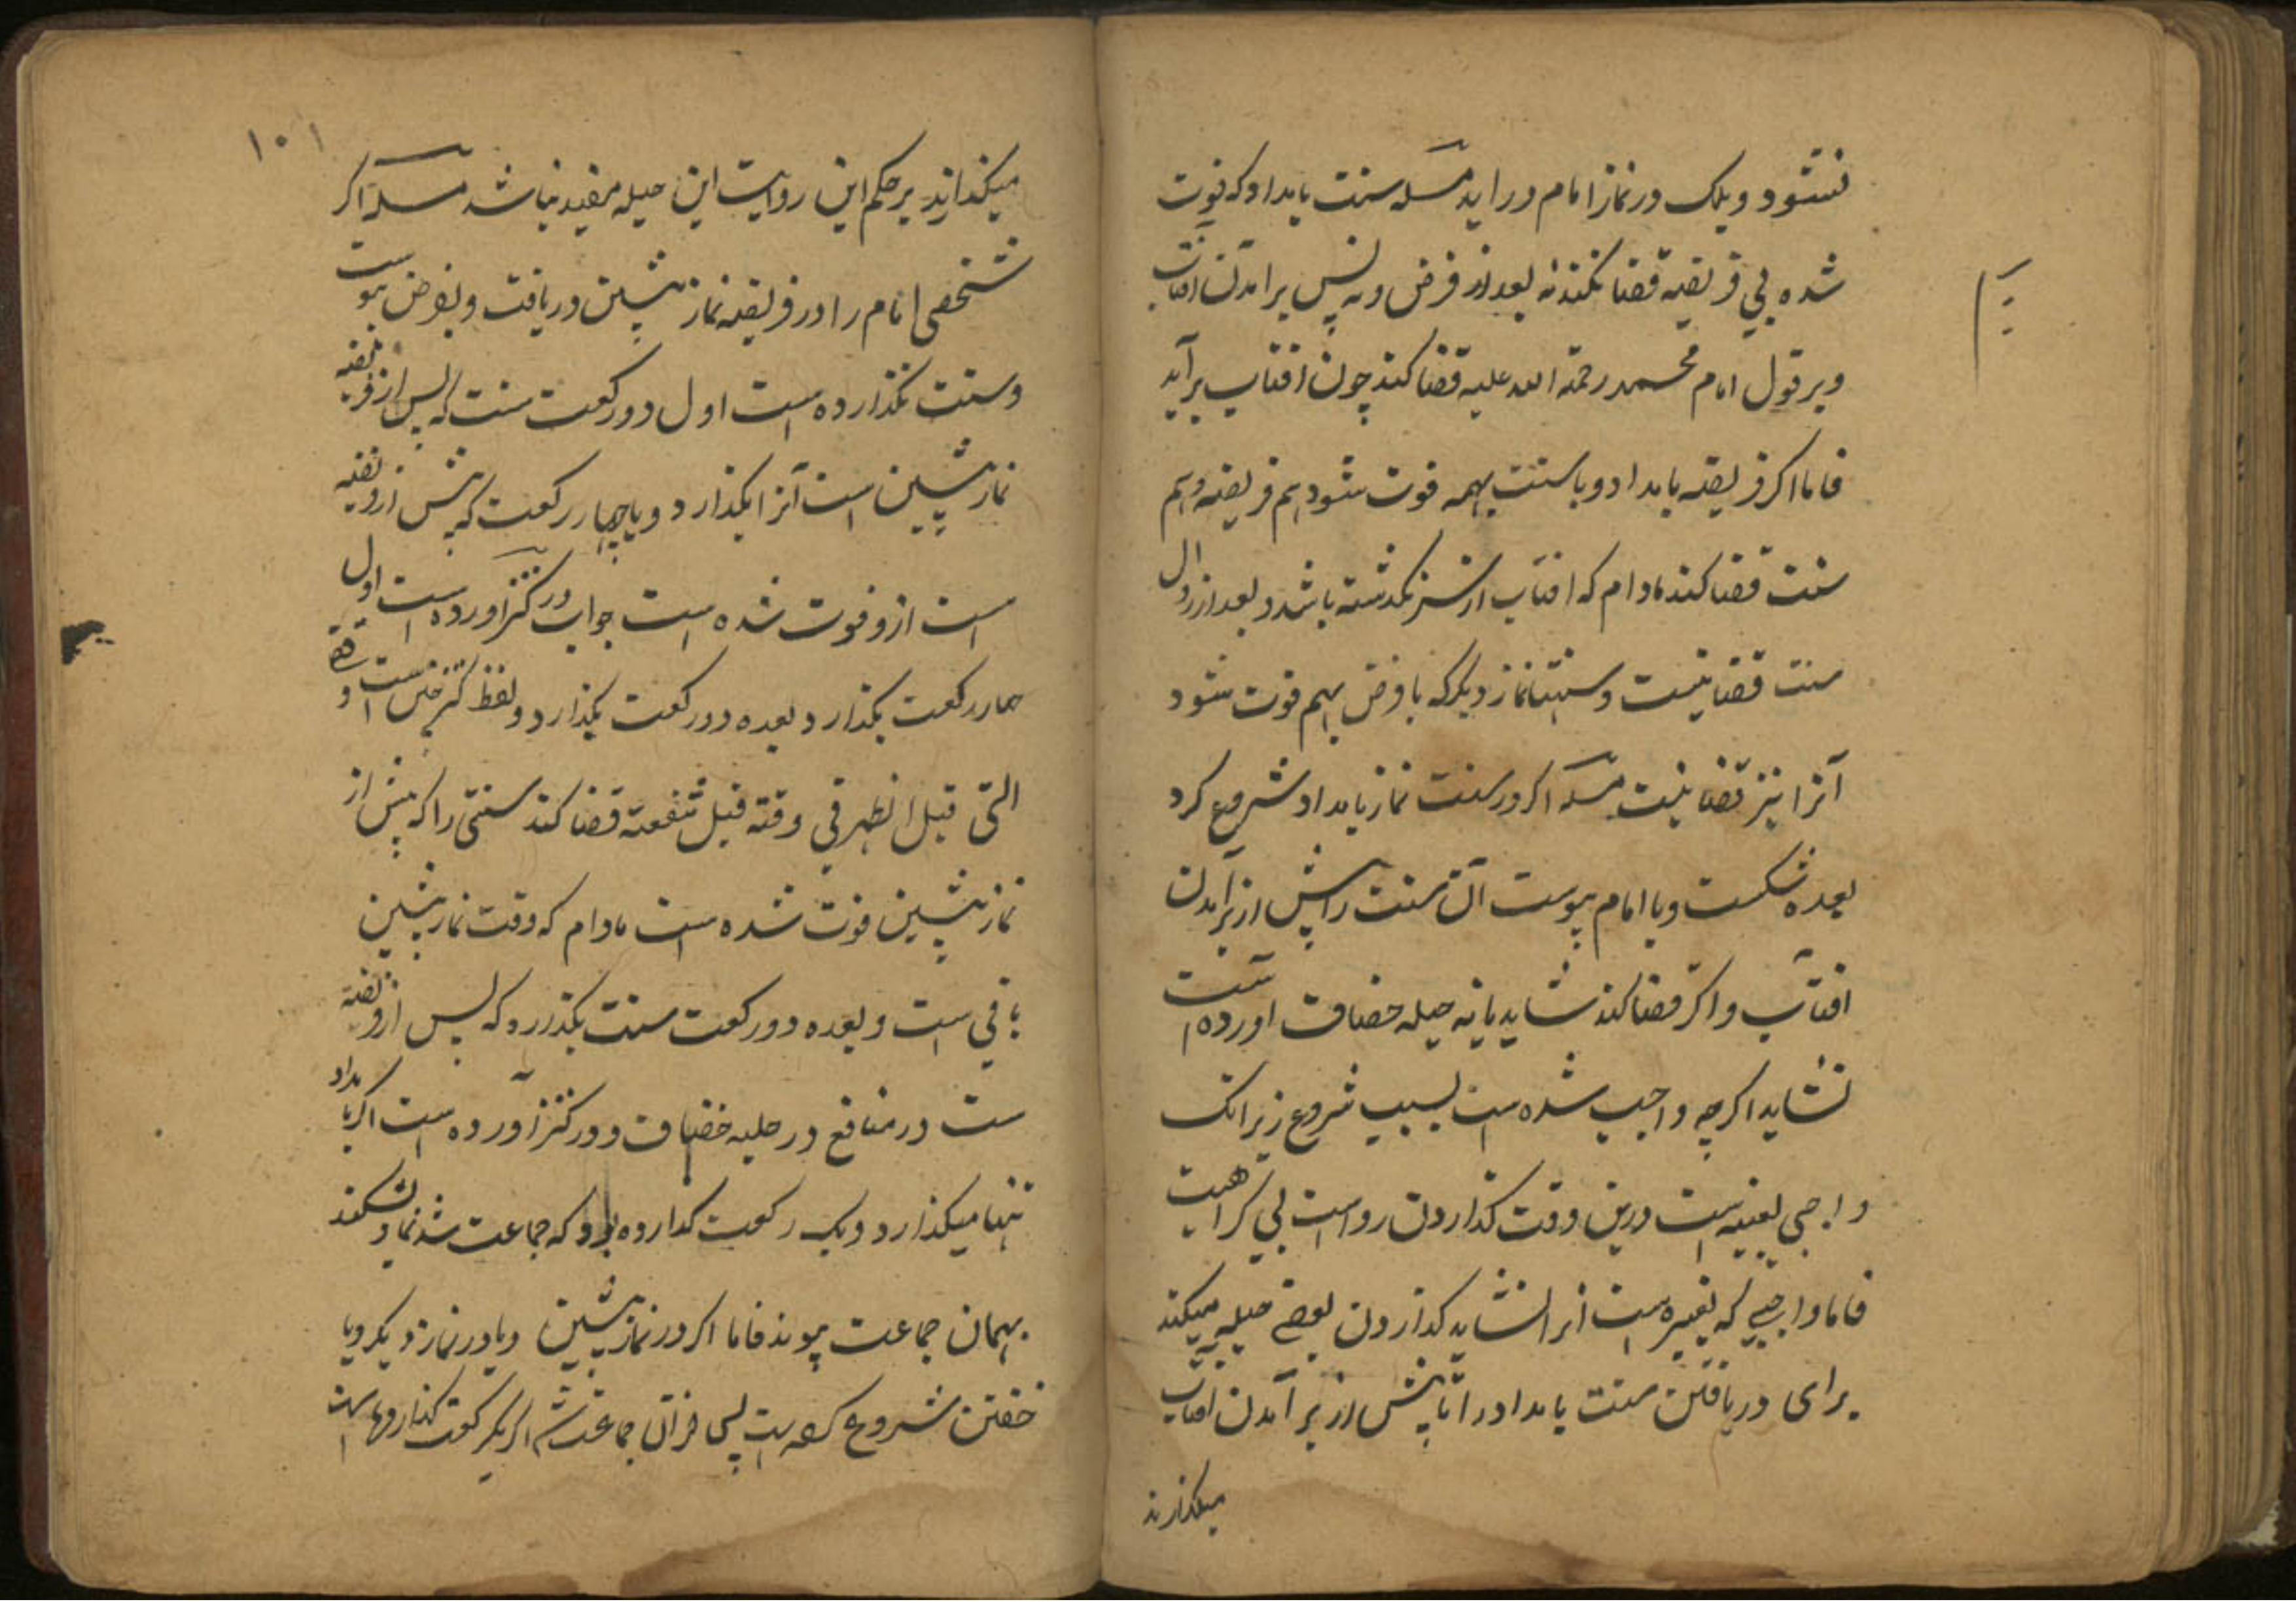 نشود ویلک در نماز امام در اید مسله سنت بامداد که فوت
شده بی فریضه قضا نکند نه بعد از فرض و نه پس برامدن افتاب
و بر قول امام محمد رحمة الله علیه قضا کند چون افتاب برآید
فاما اکر فریضه بامداد و با سنت بهمه فوت شود هم فریضه و هم
سنت قضا کند مادام که افتاب از سر نکدشته باشد و بعد از زوال
سنت قضا نیست و سنتها نماز دیکر که با فرض بهم فوت شود
آنرا نیز قضا نیست مسله اکر در سنت نماز بامداد شروع کرد
بعده شکست و با امام پیوست آن سنت را پیش از برآمدن
افتاب و اکر قضا کند شاید یا نه حیله خصاف اورده است
نشاید اکرچه واجب شده است بسبب شروع زیرانک
واجبی لعینه است درین وقت کذاردن رواست بی کراهیت
فاما واجبی که لغیره است انرا نشاید کذاردن بعضی حیله میکند
برای دریافتن سنت بامداد را تا پیش از برآمدن افتاب
میکذارند
١٠١
میکذارند بر حکم این روایت این حیله مفید نباشد مسله اکر
شخصی امام را در فریضه نماز پیشین دریافت و بفرض پیوست
و سنت نکذارده است اول دو رکعت سنت که پس از فریضه
نماز پیشین است آنرا بکذارد و یا چهار رکعت که پیش از فریضه
است ازو فوت شده است جواب در کنز اورده است اول
چهار رکعت بکذارد بعده دو رکعت بکذارد و لفظ کنز این است و قضی
التی قبل الظهر فی وقته قبل شفعته قضا کند سنتی را که پیش از
نماز پیشین فوت شده است مادام که وقت نماز پیشین
باقی است و بعده دو رکعت سنت بکذرد که پس از فریضه
ست در منافع در حلیه خصاف و در کنز آورده است اکر بامداد
تنها میکذارد و یک رکعت کدارده بود که جماعت شد نماز بشکند
بهمان جماعت پیوندد فاما اکر در نماز پیشین و یا در نماز دیکر و یا
خفتن شروع کرده است پس از آن جماعت شد اکر یک رکعت کذارده است